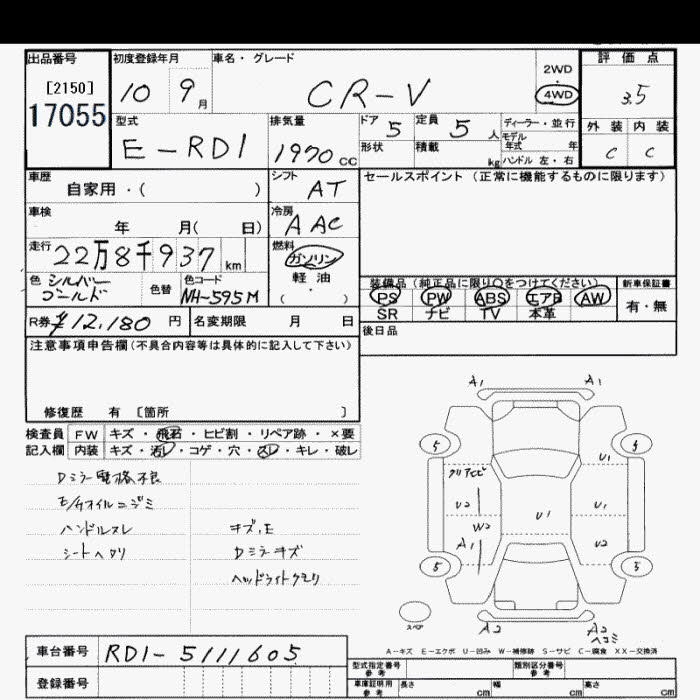 出品番号 初度登録年月 車名・グレード 2WD 評価点
[2150] 10 9月 CR-V ・ 3.5
17055 4WD
外装 内装
型式 排気量 ドア 5 定員 5人 ディーラー・並行
E-RD1 1970cc モデル年式 年 C C
形状 積載 kg ハンドル 左・右
車歴 シフト セールスポイント(正常に機能するものに限ります)
自家用・( ) AT
車検 冷房
年 月( 日) AAC
走行 22万8千937km 燃料
ガソリン
色 シルバー 色替 色コード 軽油 装備品(純正品に限り○をつけてください) 新車保証書
ゴールド NH-595M ・( ) PS PW ABS エアB AW 有・無
SR ナビ TV 本革
R券 ¥12,180円 名変期限 月 日 後日品
注意事項申告欄(不具合内容等は具体的に記入して下さい)
修復歴 有 〔箇所 〕
A1 A1
検査員 FW キズ・飛石・ヒビ割・リペア跡・×要
記入欄 内装 キズ・汚レ・コゲ・穴・スレ・キレ・破レ
5 5
U1
Dミラー電格不良
U2 U1 U1
E/Gオイルニジミ
W2
ハンドルスレ キズ、E
A1 U2
シートヘタリ Dミラキズ
5 5
ヘッドライトクモリ
スペア A2 A2
ヘコミ
車台番号 RD1-5111605
A-キズ E-エクボ U-凹み W-補修跡 S-サビ C-腐食 XX-交換済
型式指定番号参考 類別区分番号参考
登録番号 車庫証明用参考 長さ cm 幅 cm 高さ cm